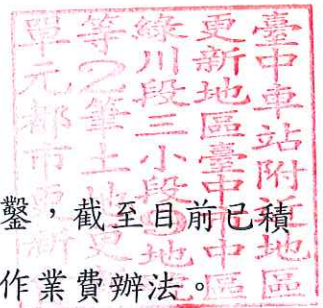 臺中車站附近地區
更新地區臺中市中區
綠川段三小段9地
等2筆土地更新
單元都市更新
鑿，截至目前已積
作業費辦法。